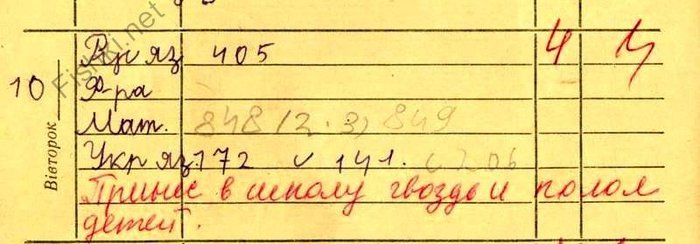 Fishki.net
Вівторок
10
Рус яз 405 4
Ф-ра
Мат. 848 (2.3) 849
Укр яз. 172 141. с 206
Принес в школу гвоздь и колол
детей.